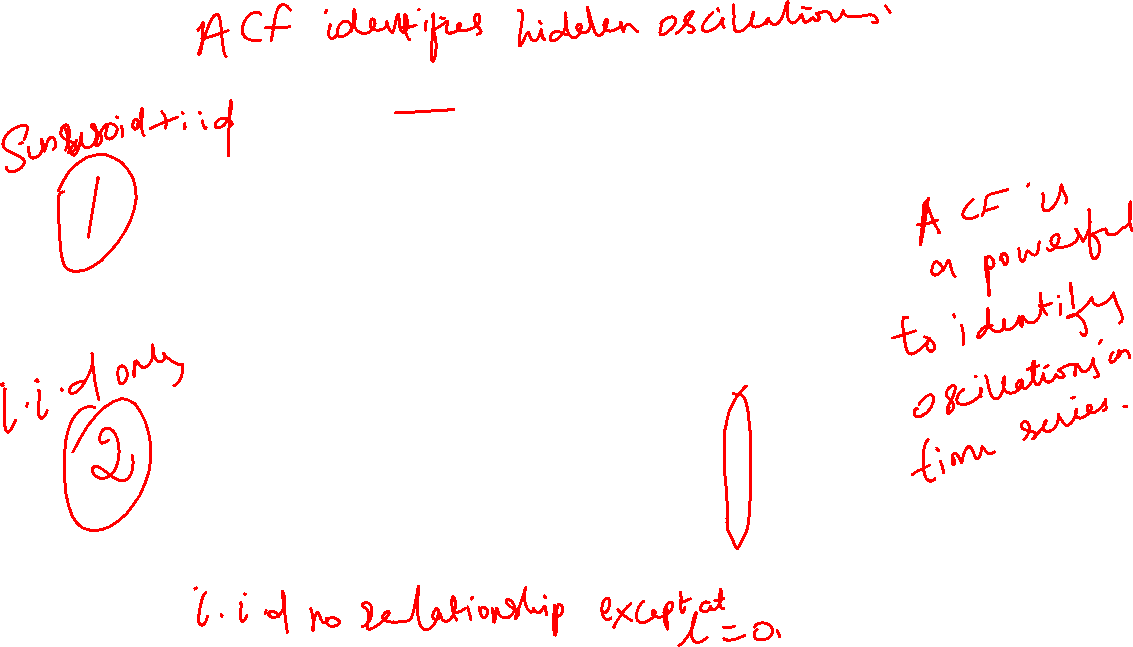 ACF identifies hidden oscillations.
Sinusoid + iid
1
ACF is
a powerful
to identify
oscillations in
time series.
i.i.d only
2
i.i d no relationship except at
l = 0.